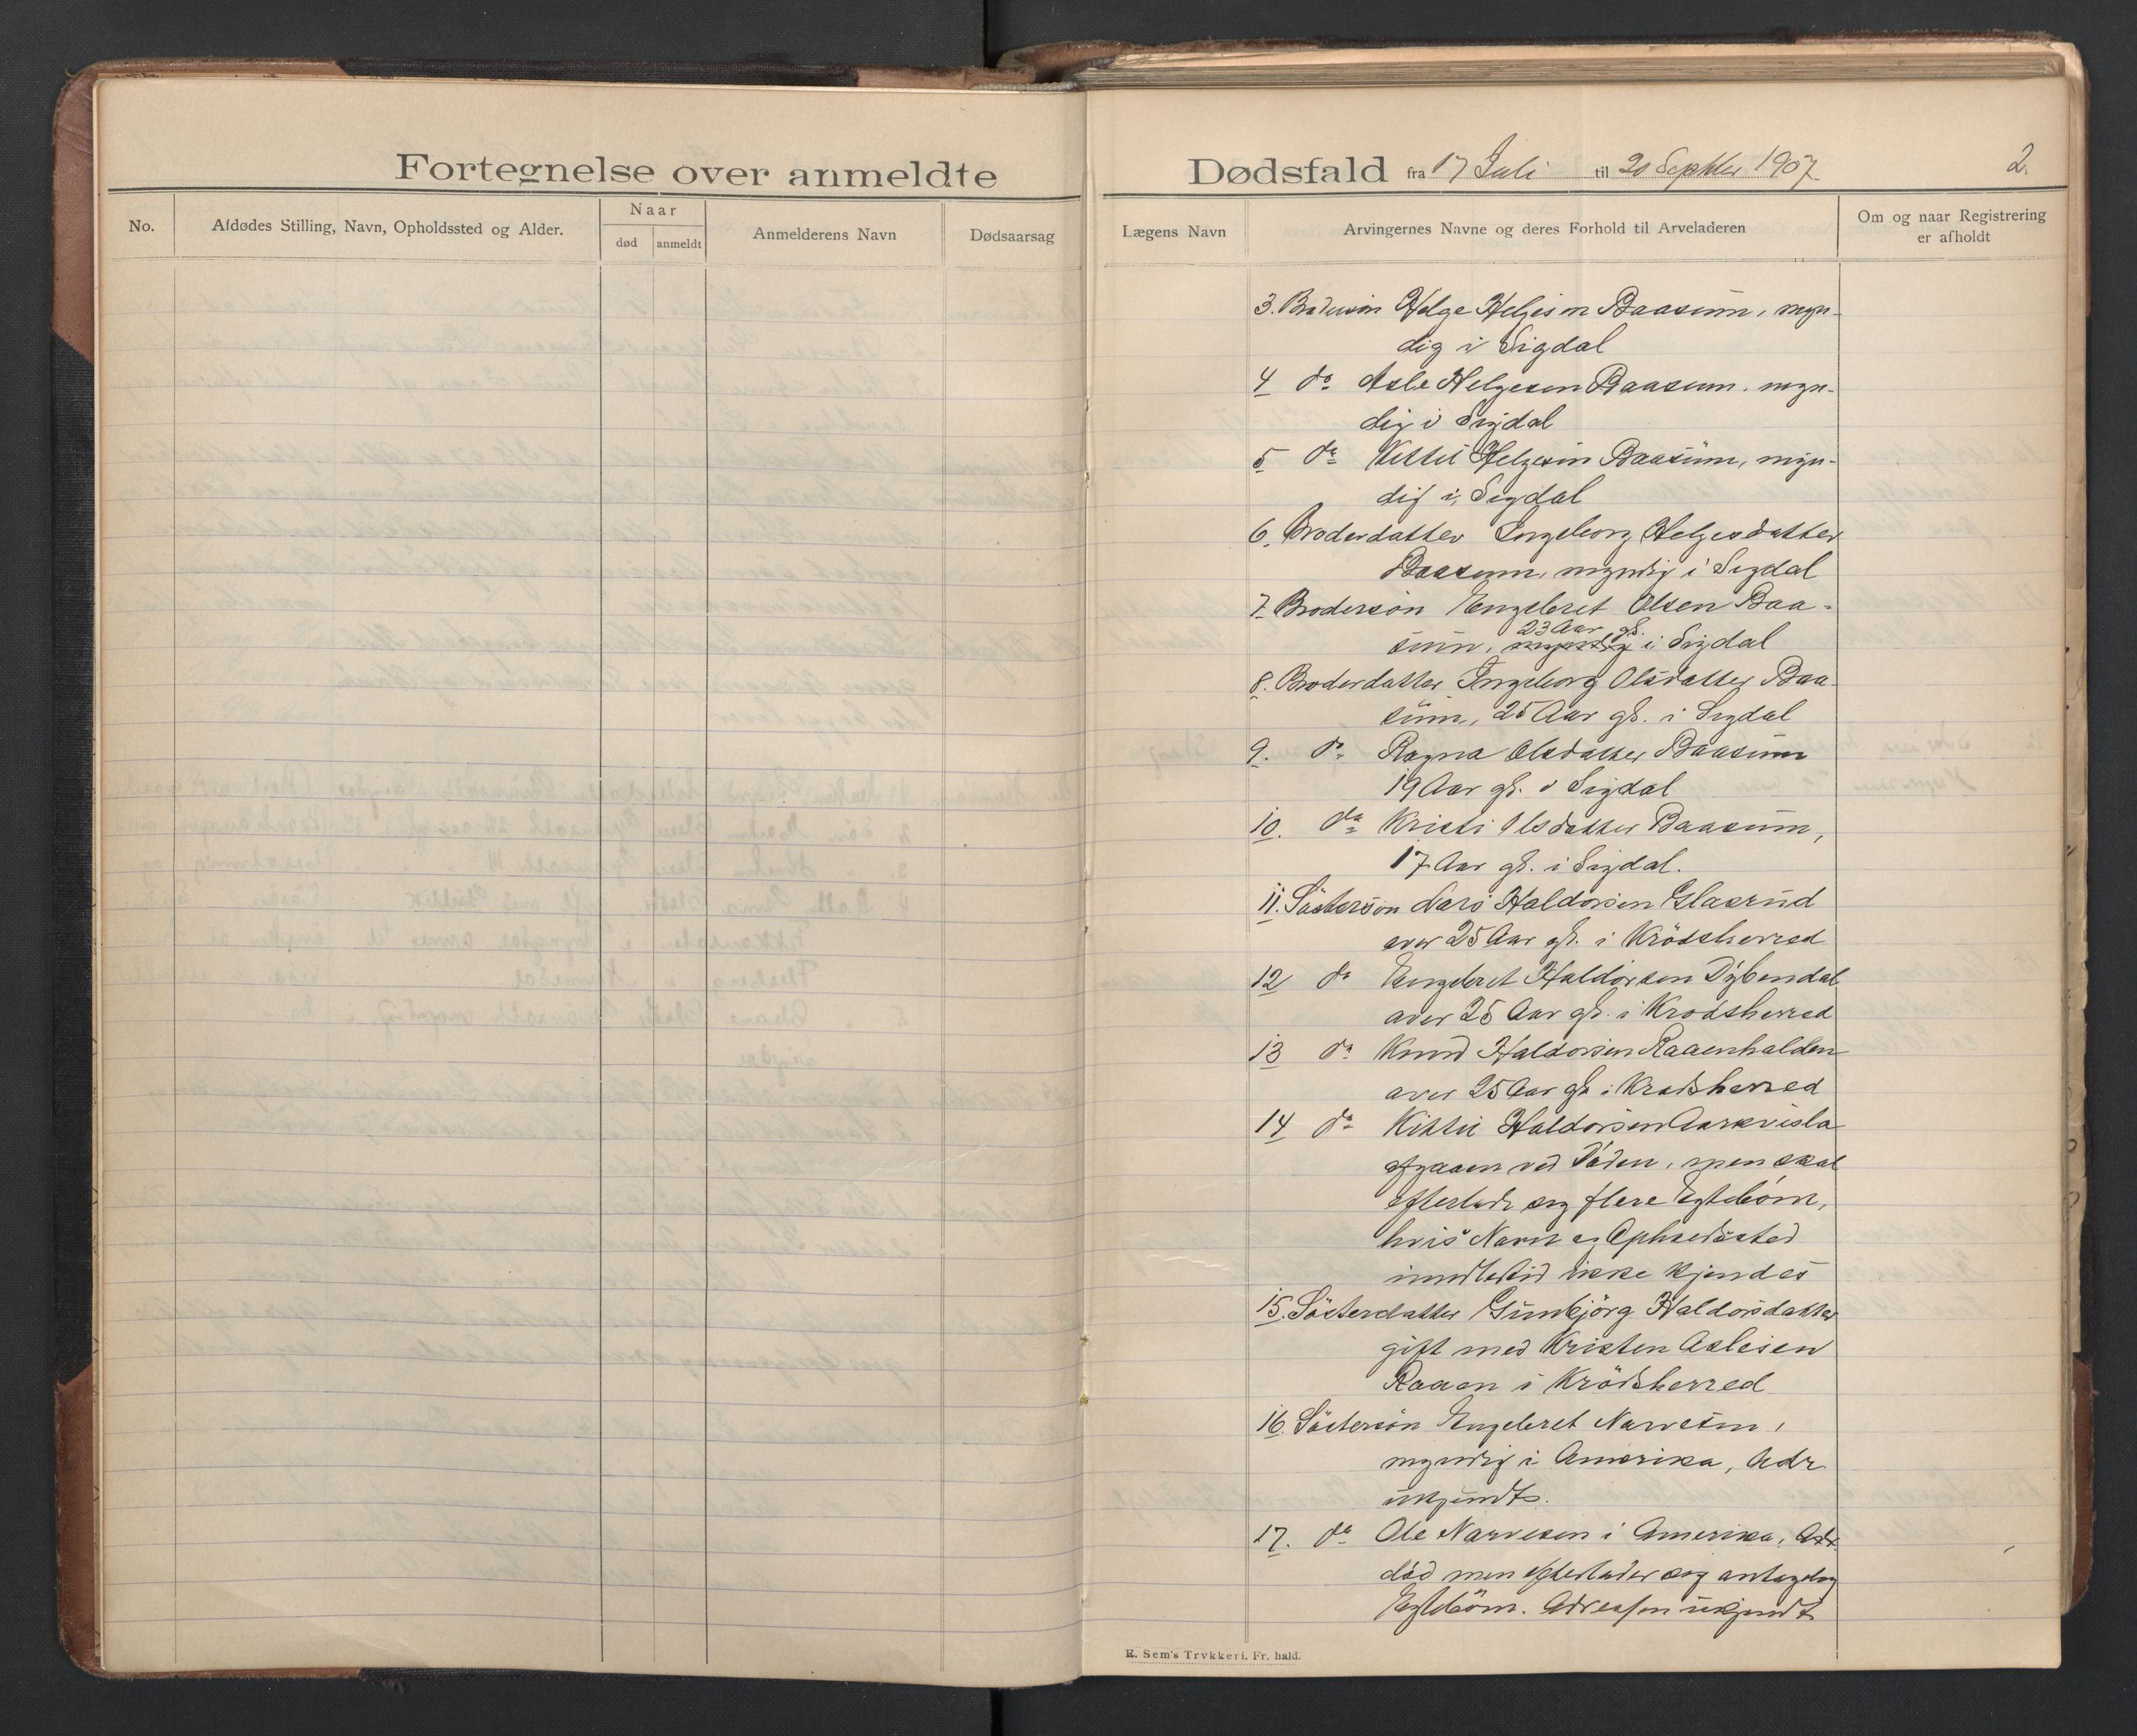 Fortegnelse over anmeldte
No.
Afdødes Stilling, Navn, Opholdssted og Alder.
Naar
død
anmeldt
Anmelderens Navn
Dødsaarsag
Dødsfald fra 17 Juli til 20 Septbler 1907.
2.
Lægens Navn
Arvingernes Navne og deres Forhold til Arveladeren
Om og naar Registrering
er afholdt
3. Brodersön Helge Helgesen Baasum, myn-
dig i Sigdal
4 do Asle Helgesen Baasum, myn-
dig i Sigdal
5 do Kittil Helgesen Baasum, myn-
dig i Sigdal
6. Broderdatter Ingeborg Helgesdatter
Baasum, myndig i Sigdal
7. Brodersön Engebret Olsen Baa-
23 Aar gl.
sum, myndig i Sigdal
8. Broderdatter Ingeborg Olsdatter Baa-
sum, 25 Aar gl. i Sigdal
9. do Ragna Olsdatter Baasum
19 Aar gl. i Sigdal
10. do Kristi Olsdatter Baasum,
17 Aar gl. i Sigdal.
11. Söstersön Lars Haldorsen Glasrud
over 25 Aar gl. i Krödsherred
12 do Engebret Haldorsen Dybendal
over 25 Aar gl. i Krodsherred
13 do Knud Haldorsen Raaenhalden
over 25 Aar gl. i Krodsherred
14 do Kittil Haldorsen Aarkvisla
afgaaen ved Döden, men skal
efterlade sig flere Egtebörn,
hvis Navn og Opholdssted
imidlertid ikke kjendes
15. Sösterdatter Gunbjörg Haldorsdatter
gift med Kristen Aslesen
Raaen i Krödsherred
16. Söstersön Engebret Narvesen,
myndig i Amerika, Adr.
ukjendt.
17. do Ole Narvesen i Amerika, Adr.
död men efterlader sig antagelig
Egtebörn. Adressen ukjendt
R. Sem's Trykkeri. Fr. hald.